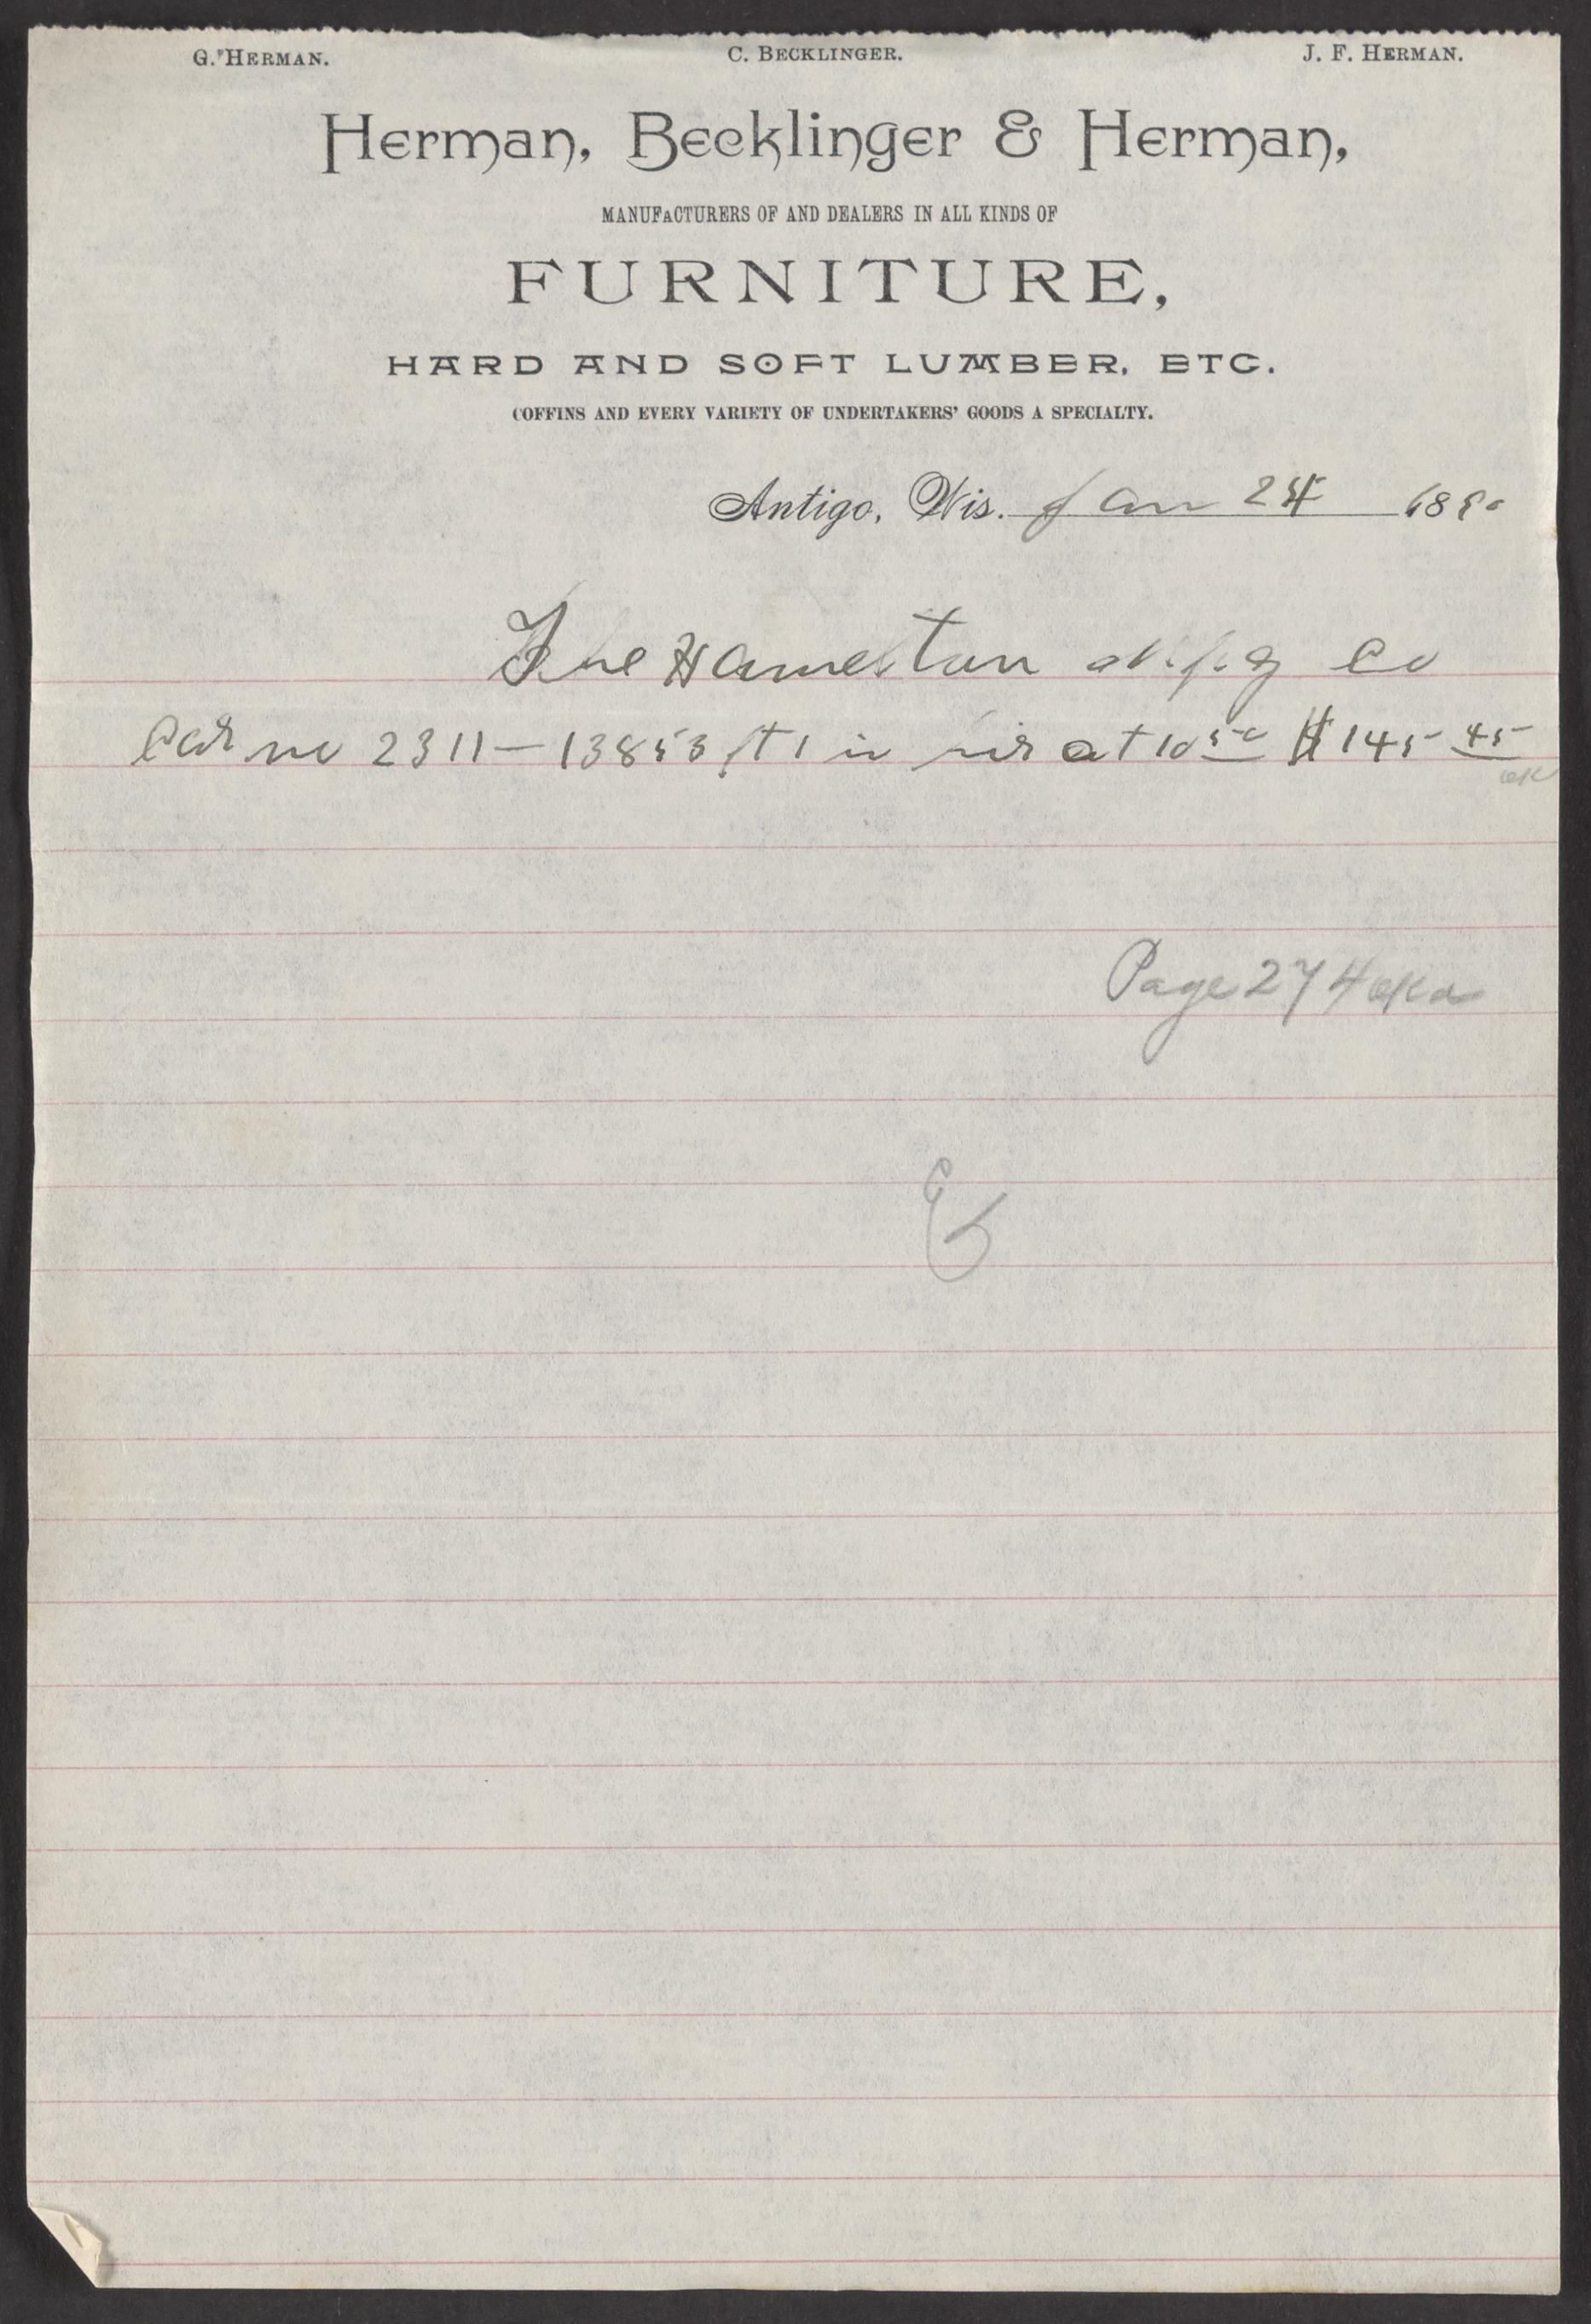 G. HERMAN. C. BECKLINGER. J. F. HERMAN.
Herman, Becklinger & Herman,
MANUFACTURERS OF AND DEALERS IN ALL KINDS OF
FURNITURE,
HARD AND SOFT LUMBER, ETC.
COFFINS AND EVERY VARIETY OF UNDERTAKERS' GOODS A SPECIALTY.
Antigo, Wis. Jan 24 1890
The Hamelton Mfg Co
Car no 2311—13853 ft 1 in at 10 50 $145 45
ok
Page 274